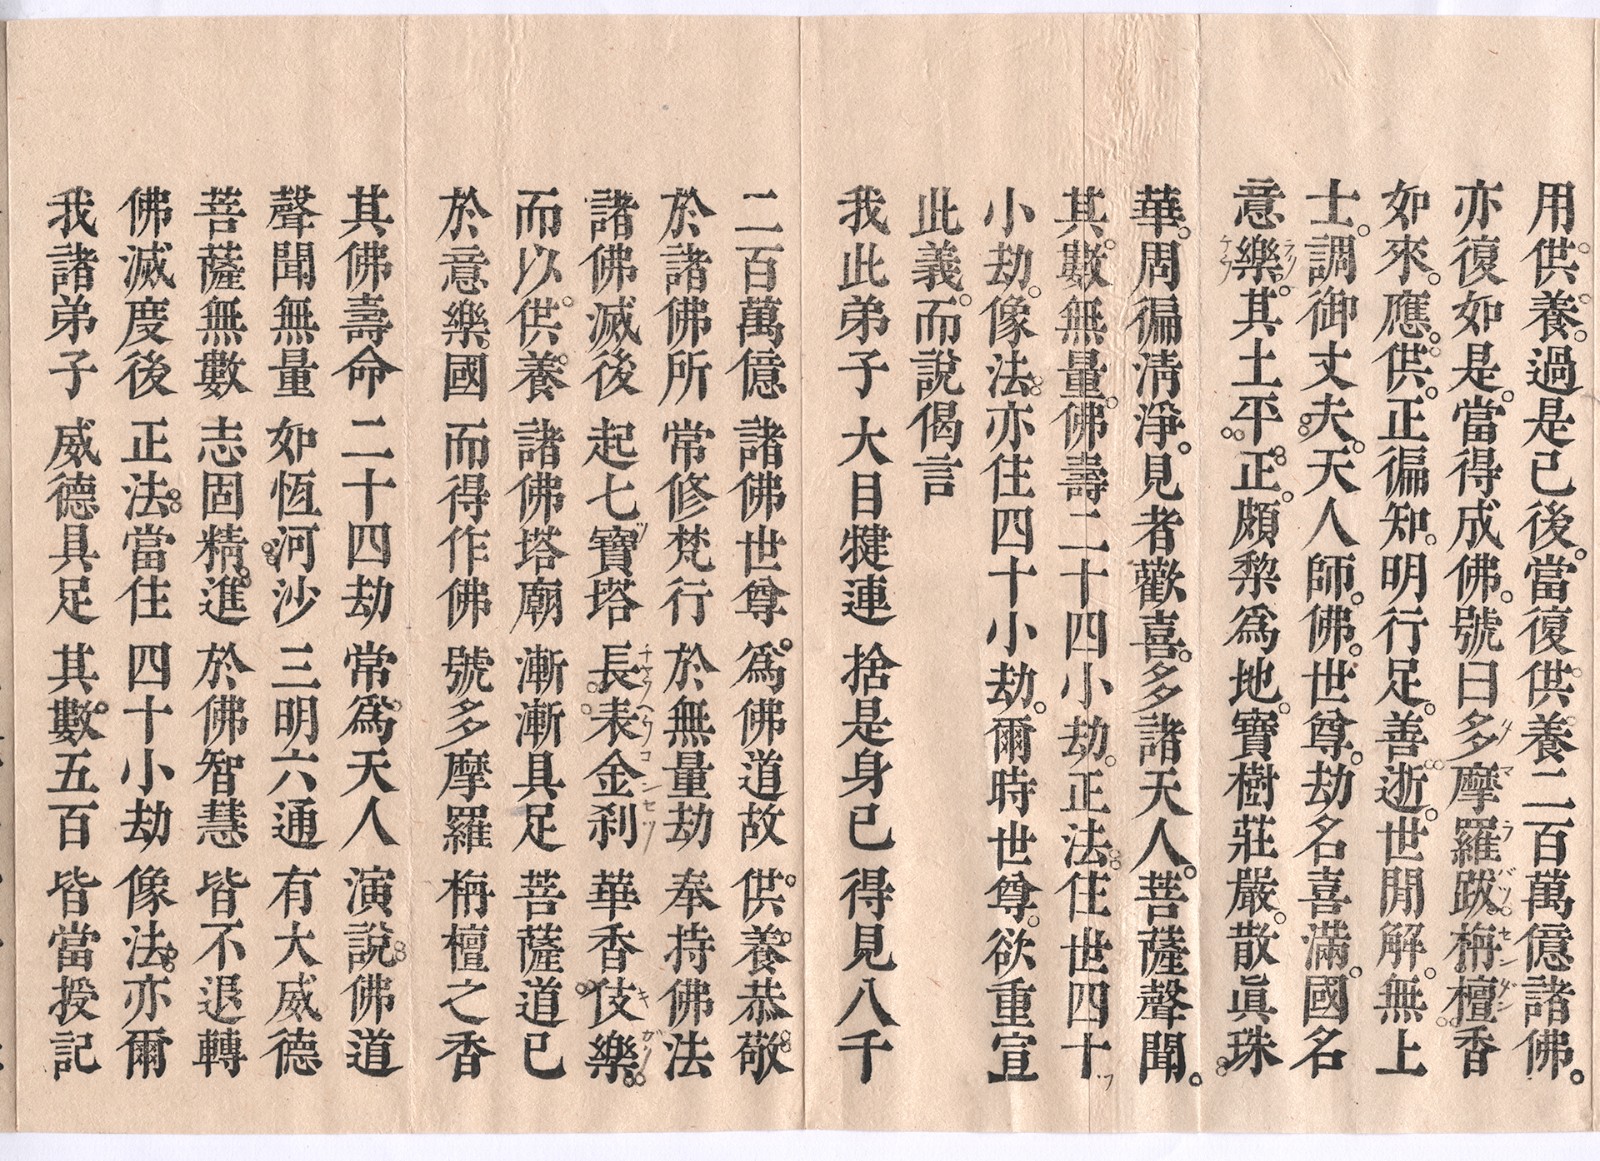 用供養。過是已後。當復供養二百萬億諸佛。
亦復如是。當得成佛。號曰多摩羅跋栴檀香
如來。應供。正徧知。明行足。善逝。世閒解。無上
士。調御丈夫。天人師。佛。世尊。劫名喜滿。國名
意樂。其土平正。頗黎爲地。寶樹莊嚴。散眞珠
華。周徧淸淨。見者歡喜。多諸天人。菩薩聲聞。
其數無量。佛壽二十四小劫。正法住世四十
小劫。像法亦住四十小劫。爾時世尊。欲重宣
此義。而說偈言
我此弟子 大目犍連 捨是身已 得見八千
二百萬億 諸佛世尊 爲佛道故 供養恭敬
於諸佛所 常修梵行 於無量劫 奉持佛法
諸佛滅後 起七寶塔 長表金刹 華香伎樂
而以供養 諸佛塔廟 漸漸具足 菩薩道已
於意樂國 而得作佛 號多摩羅 栴檀之香
其佛壽命 二十四劫 常爲天人 演說佛道
聲聞無量 如恆河沙 三明六通 有大威德
菩薩無數 志固精進 於佛智慧 皆不退轉
佛滅度後 正法當住 四十小劫 像法亦爾
我諸弟子 威德具足 其數五百 皆當授記